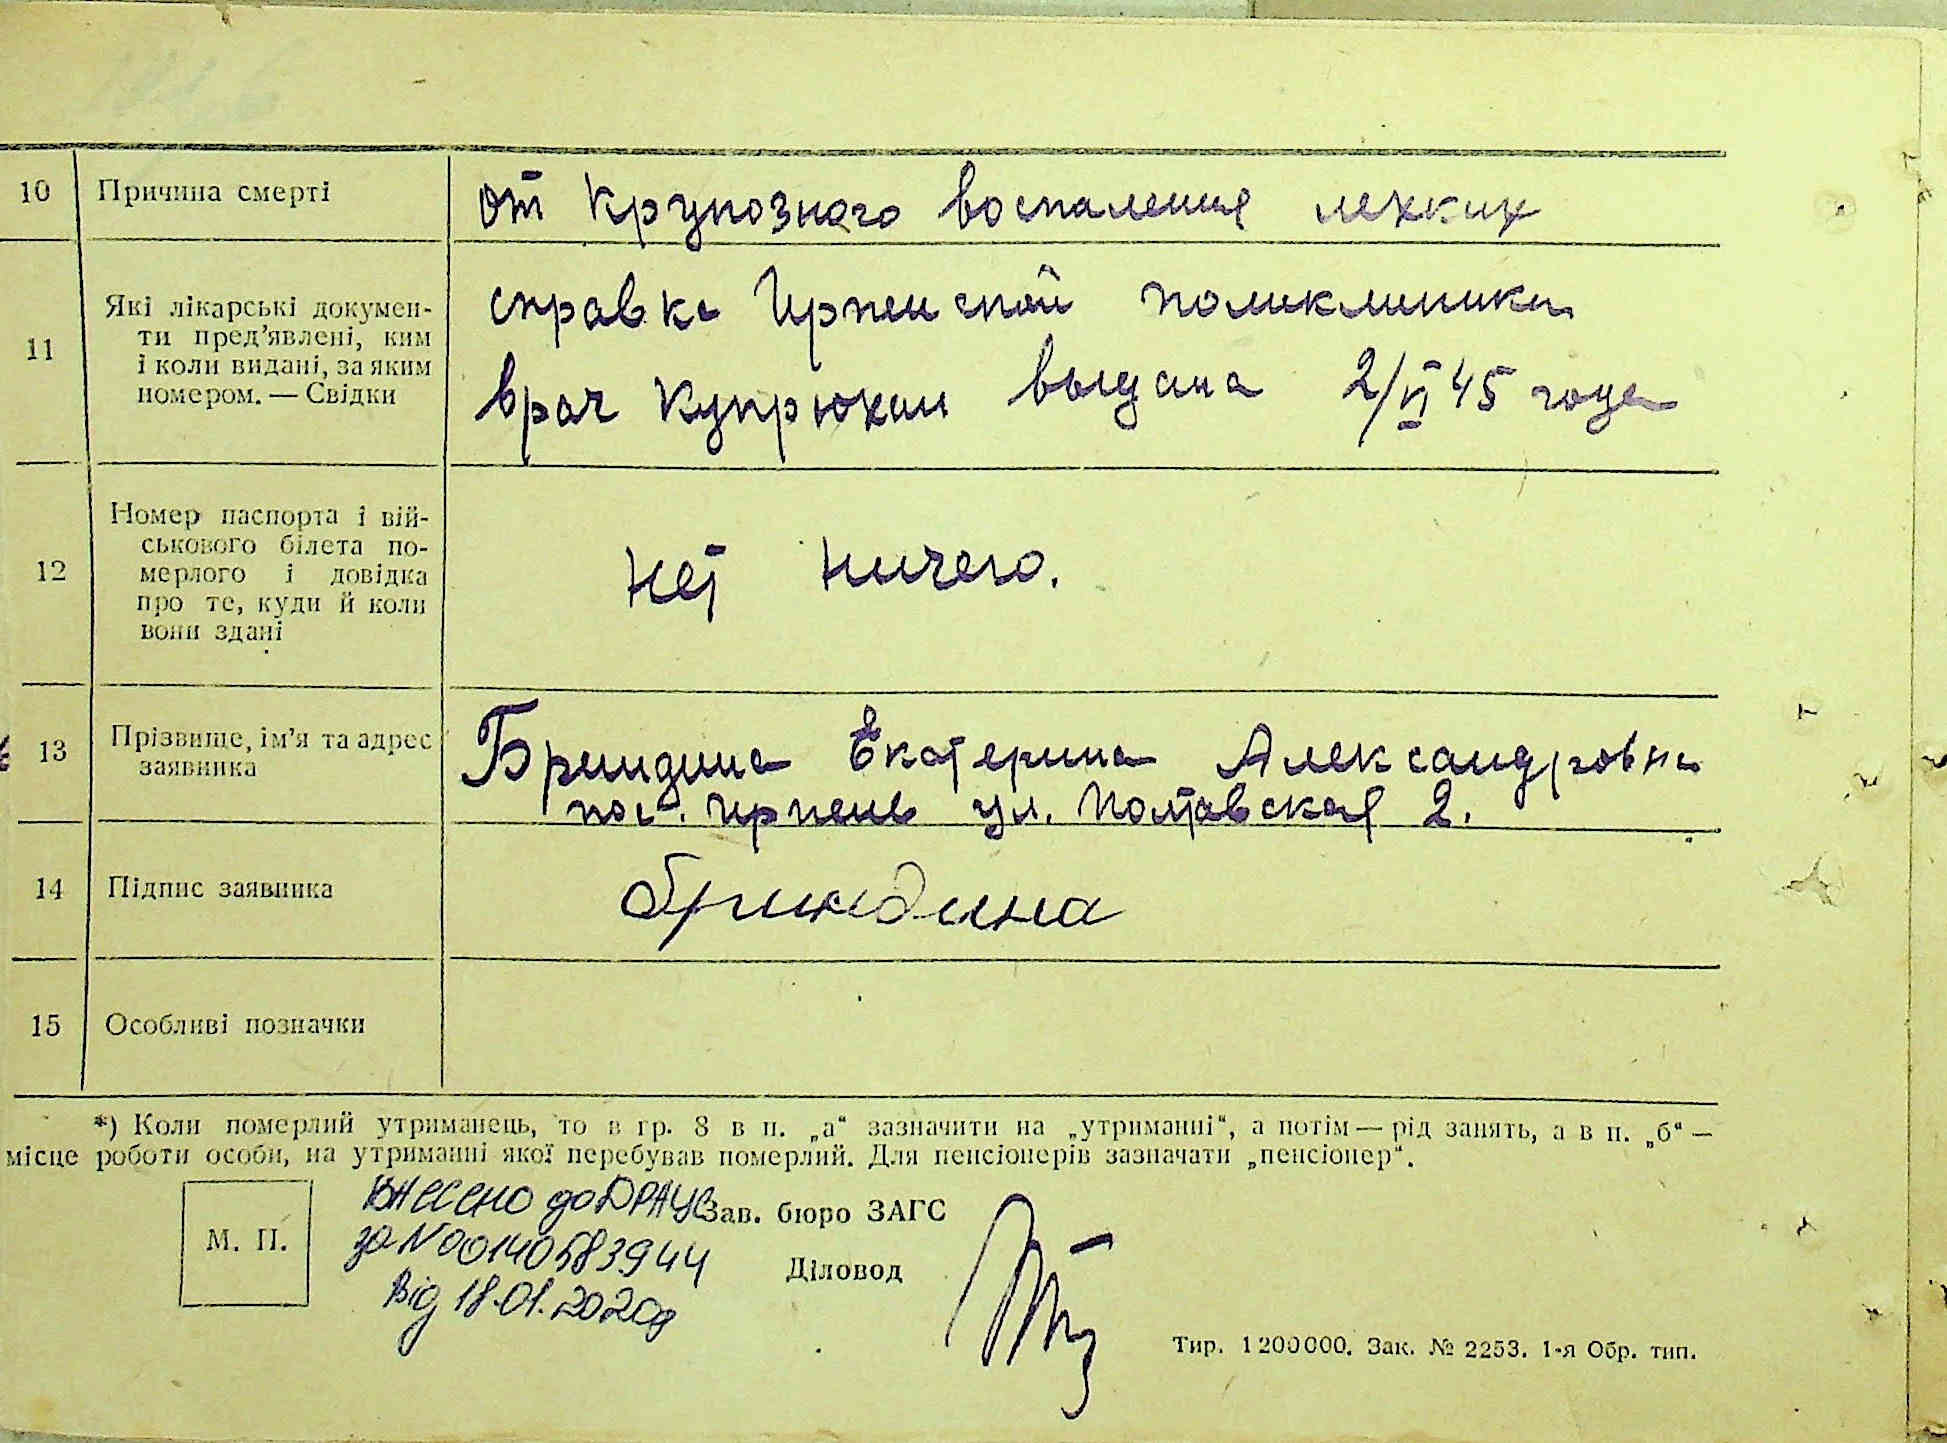 10 Причина смерті
от крупозного воспаления лехких
11 Які лікарські докумен-
ти пред’явлені, ким
і коли видані, за яким
номером. — Свідки
справка Ирпенской поликлиники
врач Купрюхин выдана 2/VI 45 года
12 Номер паспорта і вій-
ськового білета по-
мерлого і довідка
про те, куди й коли
вони здані
нет ничего.
13 Прізвище, ім’я та адрес
заявника
Бриндина Екатерина Александровна
пос. Ирпень ул. Полтавская 2.
14 Підпис заявника
Бриндина
15 Особливі позначки
*) Коли померлий утриманець, то в гр. 8 в п. „а“ зазначити на „утриманні“, а потім — рід занять, а в п. „б“ —
місце роботи особи, на утриманні якої перебував померлий. Для пенсіонерів зазначати „пенсіонер“.
М. П.
Внесено до ДРАЦС
за №00140583944
від 18.01.2020р
Зав. бюро ЗАГС
Діловод
Тир. 1200000. Зак. № 2253. 1-я Обр. тип.